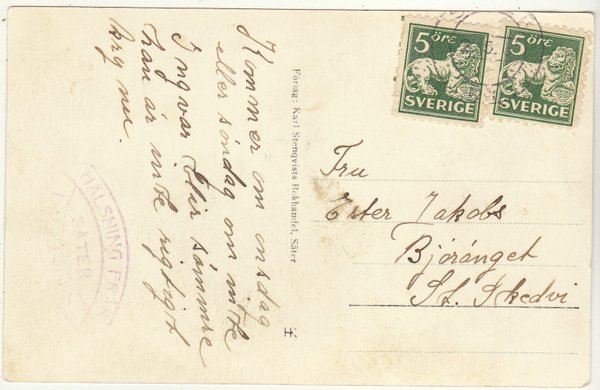 Kommer om onsdag
eller söndag om inte
Ingvar blir sämmre
han är inte rigtigt
kry nu.
Förlag: Karl Stenqvists Bokhandel, Säter.
5 öre
SVERIGE
5 öre
SVERIGE
Fru
Ester Jakobs
Björänget
St. Skedvi
HÄLSNING FRÅN
SÄTER